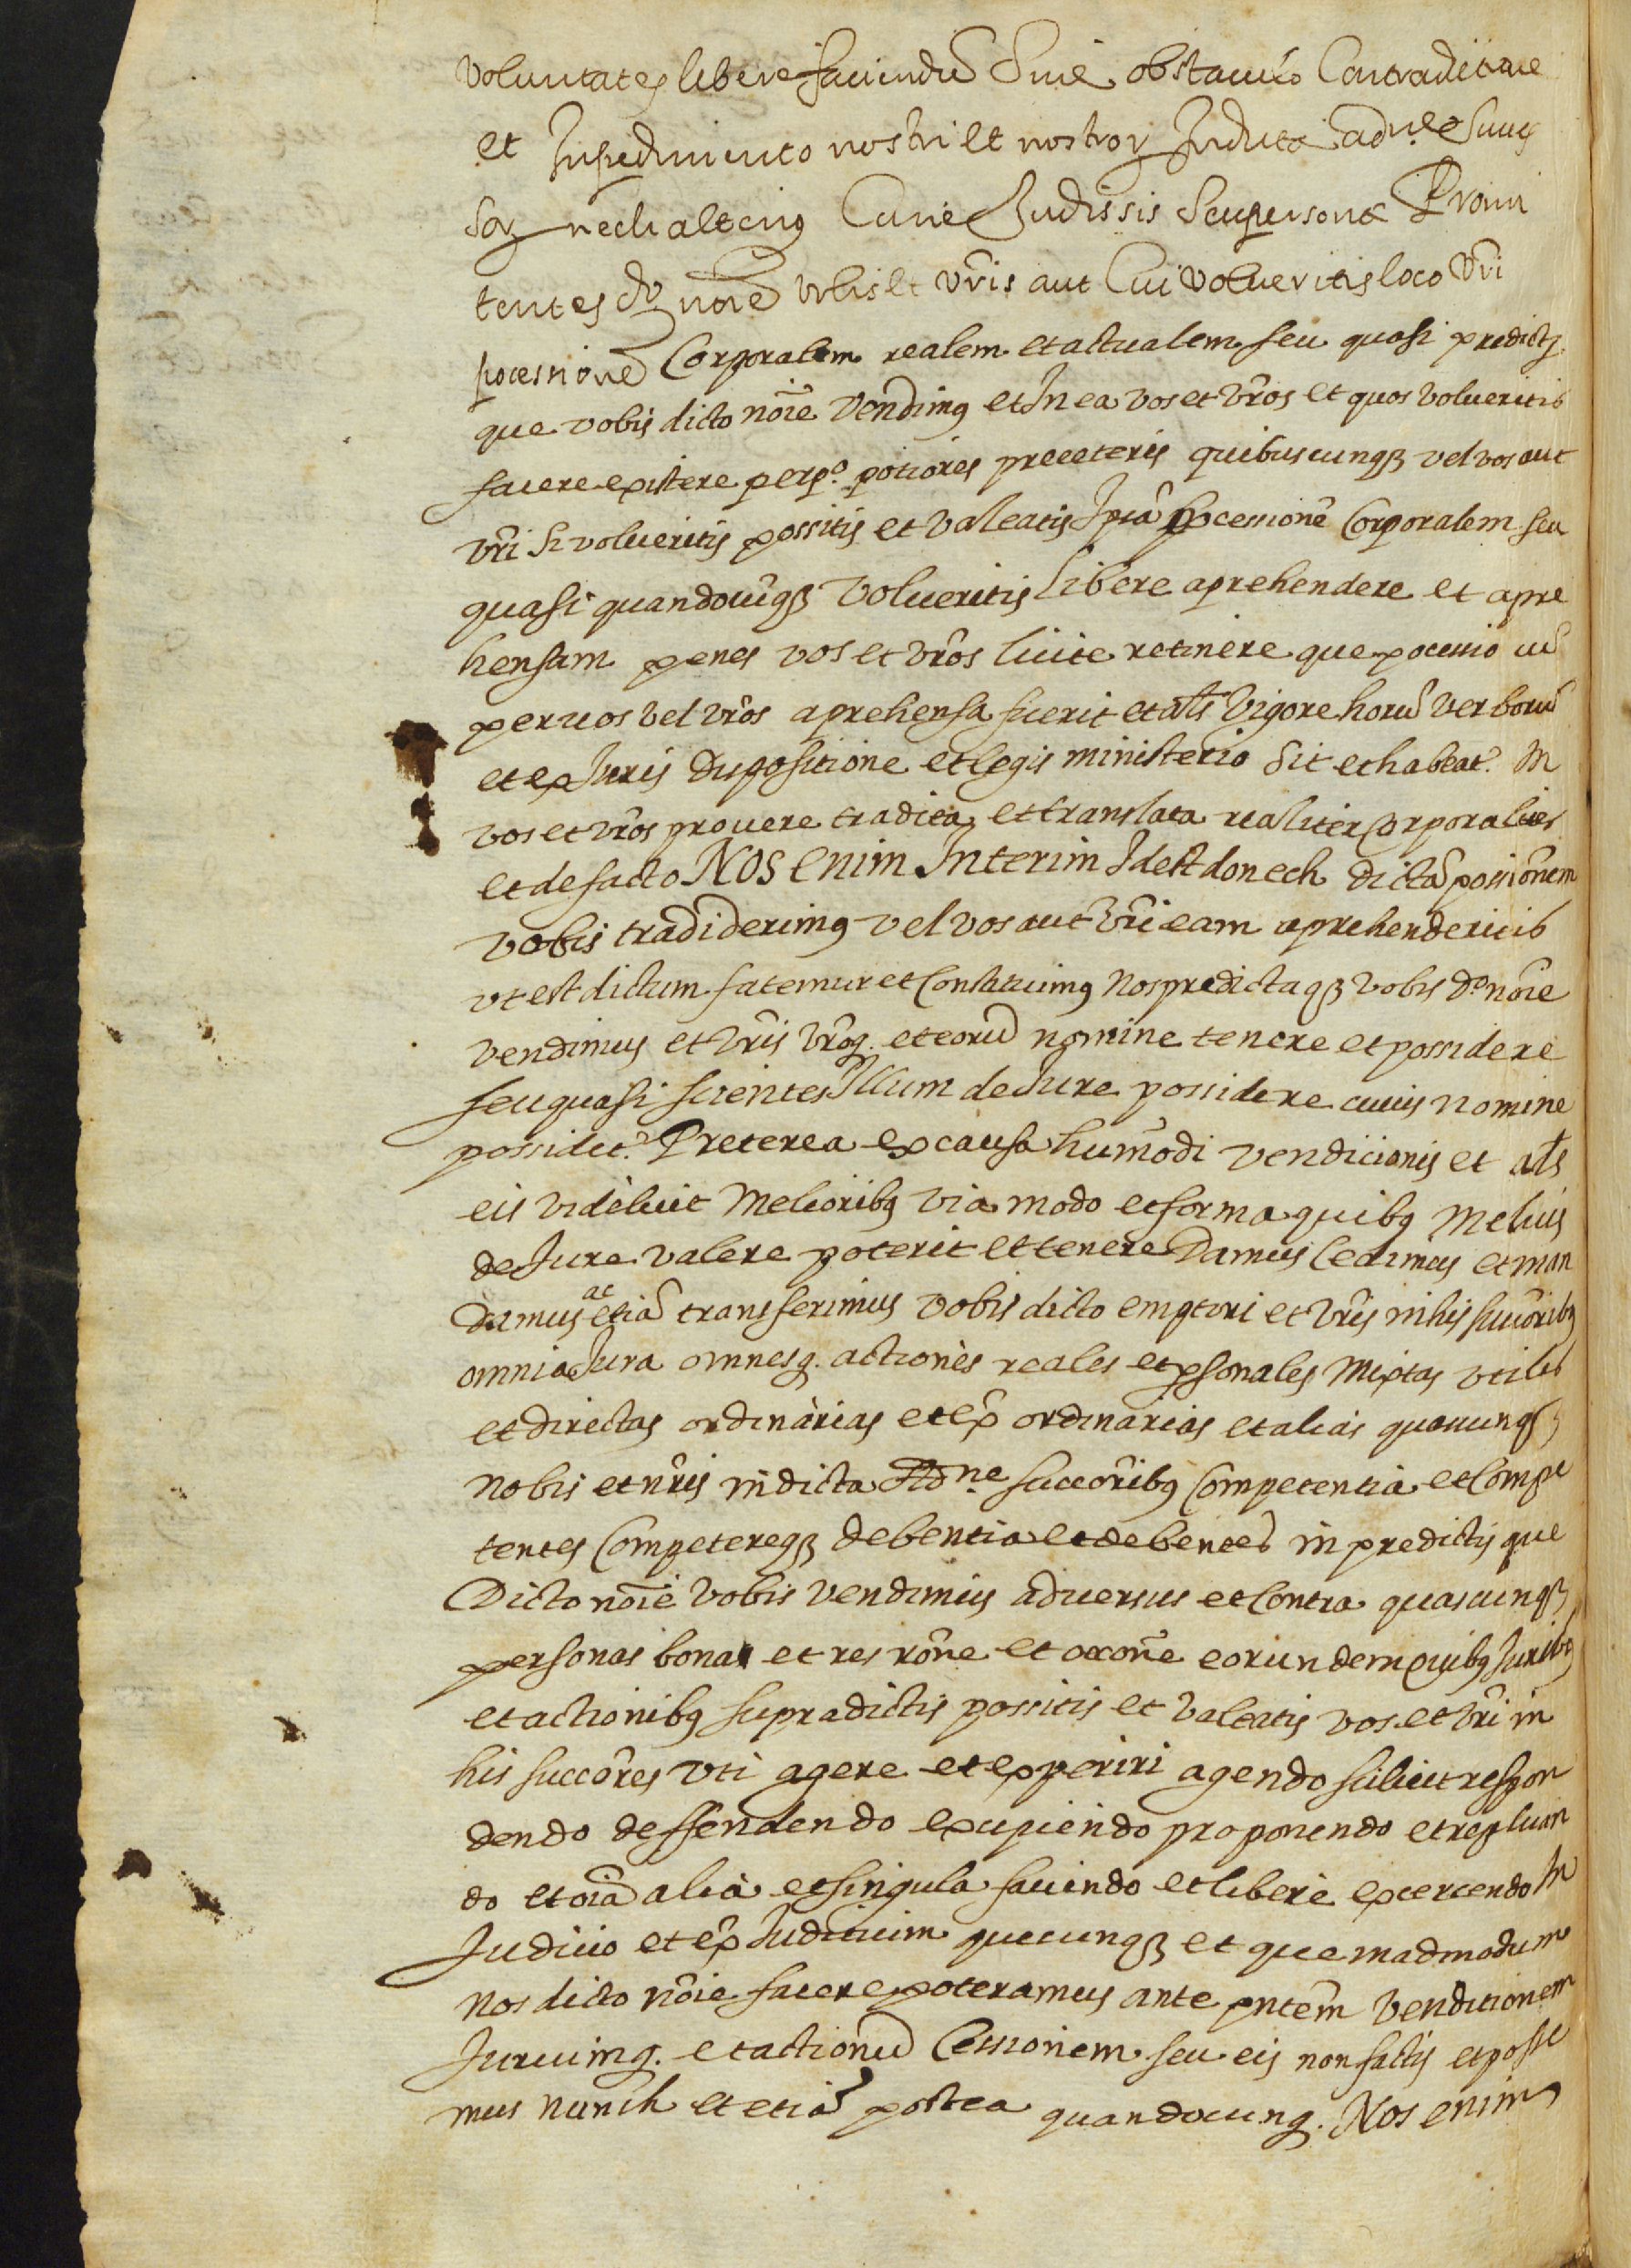 voluntates libere faciendũ Sine obstaculo Contradictione
et Impedimento nostri et nostroꝝ In dicta adn̄e Succes
soꝝ nech alterius Curie Judissis Seu persone Promi
tentes dto noīe vobis et vr̄is aut Cui volueritis loco vr̄i
pocessionẽ Corporalem realem et actualem seu quasi predictoꝝ
que vobis dicto noīe vendimꝰ et In ea vos et vr̄os et quos volueritis
facere existere perpº potiores preceteris quibuscunqꝫ vel vos aut
vr̄i si volueritis possitis et valeatis Ipsã pocessionẽ Corporalem seu
quasi quandocũqꝫ volueritis libere aprehendere et apre
hensam penes vos et vr̄os licite retinere que pocessio cũ
per vos vel vr̄os aprehensa fuerit et als̃ vigore horũ verborũ
et ex Juris dispositione et legis ministerio sit et habeat.ʳ In
vos et vr̄os pro vere tradita et translata realiter Corporaliter
et de facto NOS enim Interim Idest donech dictã possiõnem
vobis tradiderimꝰ vel vos aut vr̄i eam aprehenderitis
vt est dictum fatemur et Constituimꝰ nos predicta qꝫ vobis dº noīe
vendimus et vr̄is vr̄oq. et eorũ nomine tenere et possidere
seu quasi scientes Illum de Jure possidere cuius nomine
possidet.ʳ Preterea ex causa humõdi vendicionis et als̃
eis videlicit melioribꝰ via modo et forma quibꝰ melius
de Jure valere poterit et tenere Damus Cedimus et man
damus ac etiã transferimus vobis dicto emptori et vr̄is in his succõribꝰ
omnia Jura omnesq. actiones reales et p̱sonales mixtas vtiles
et directas ordinarias et ex̃ ordinarias et alias quascunqꝫ
nobis et nr̄is in dicta Adn̄e succõribꝰ Competentia et Compe
tentes Competereqꝫ debentia et debentes in predictis que
Dicto noīe vobis vendimus adversus et Contra quascunqꝫ
personas bona et res rõne et occõne eorundem quibꝰ Juribꝰ
et actionibꝰ supradictis possitis et valeatis vos et vr̄i in
his succõres vti agere et experiri agendo scilicit respon
dendo deffendendo excipiendo proponendo et replican
do et oīa alia et singula faciendo et libere excercendo In
Judicio et ex̃ Juditium quecunqꝫ et quemadmodum
nos dicto noīe facere poteramus ante pñtem venditionem
Juriumq. et actionũ Cessionem seu eis non factis et posse
mus nunch et etiã postea quandocunq. Nos enim